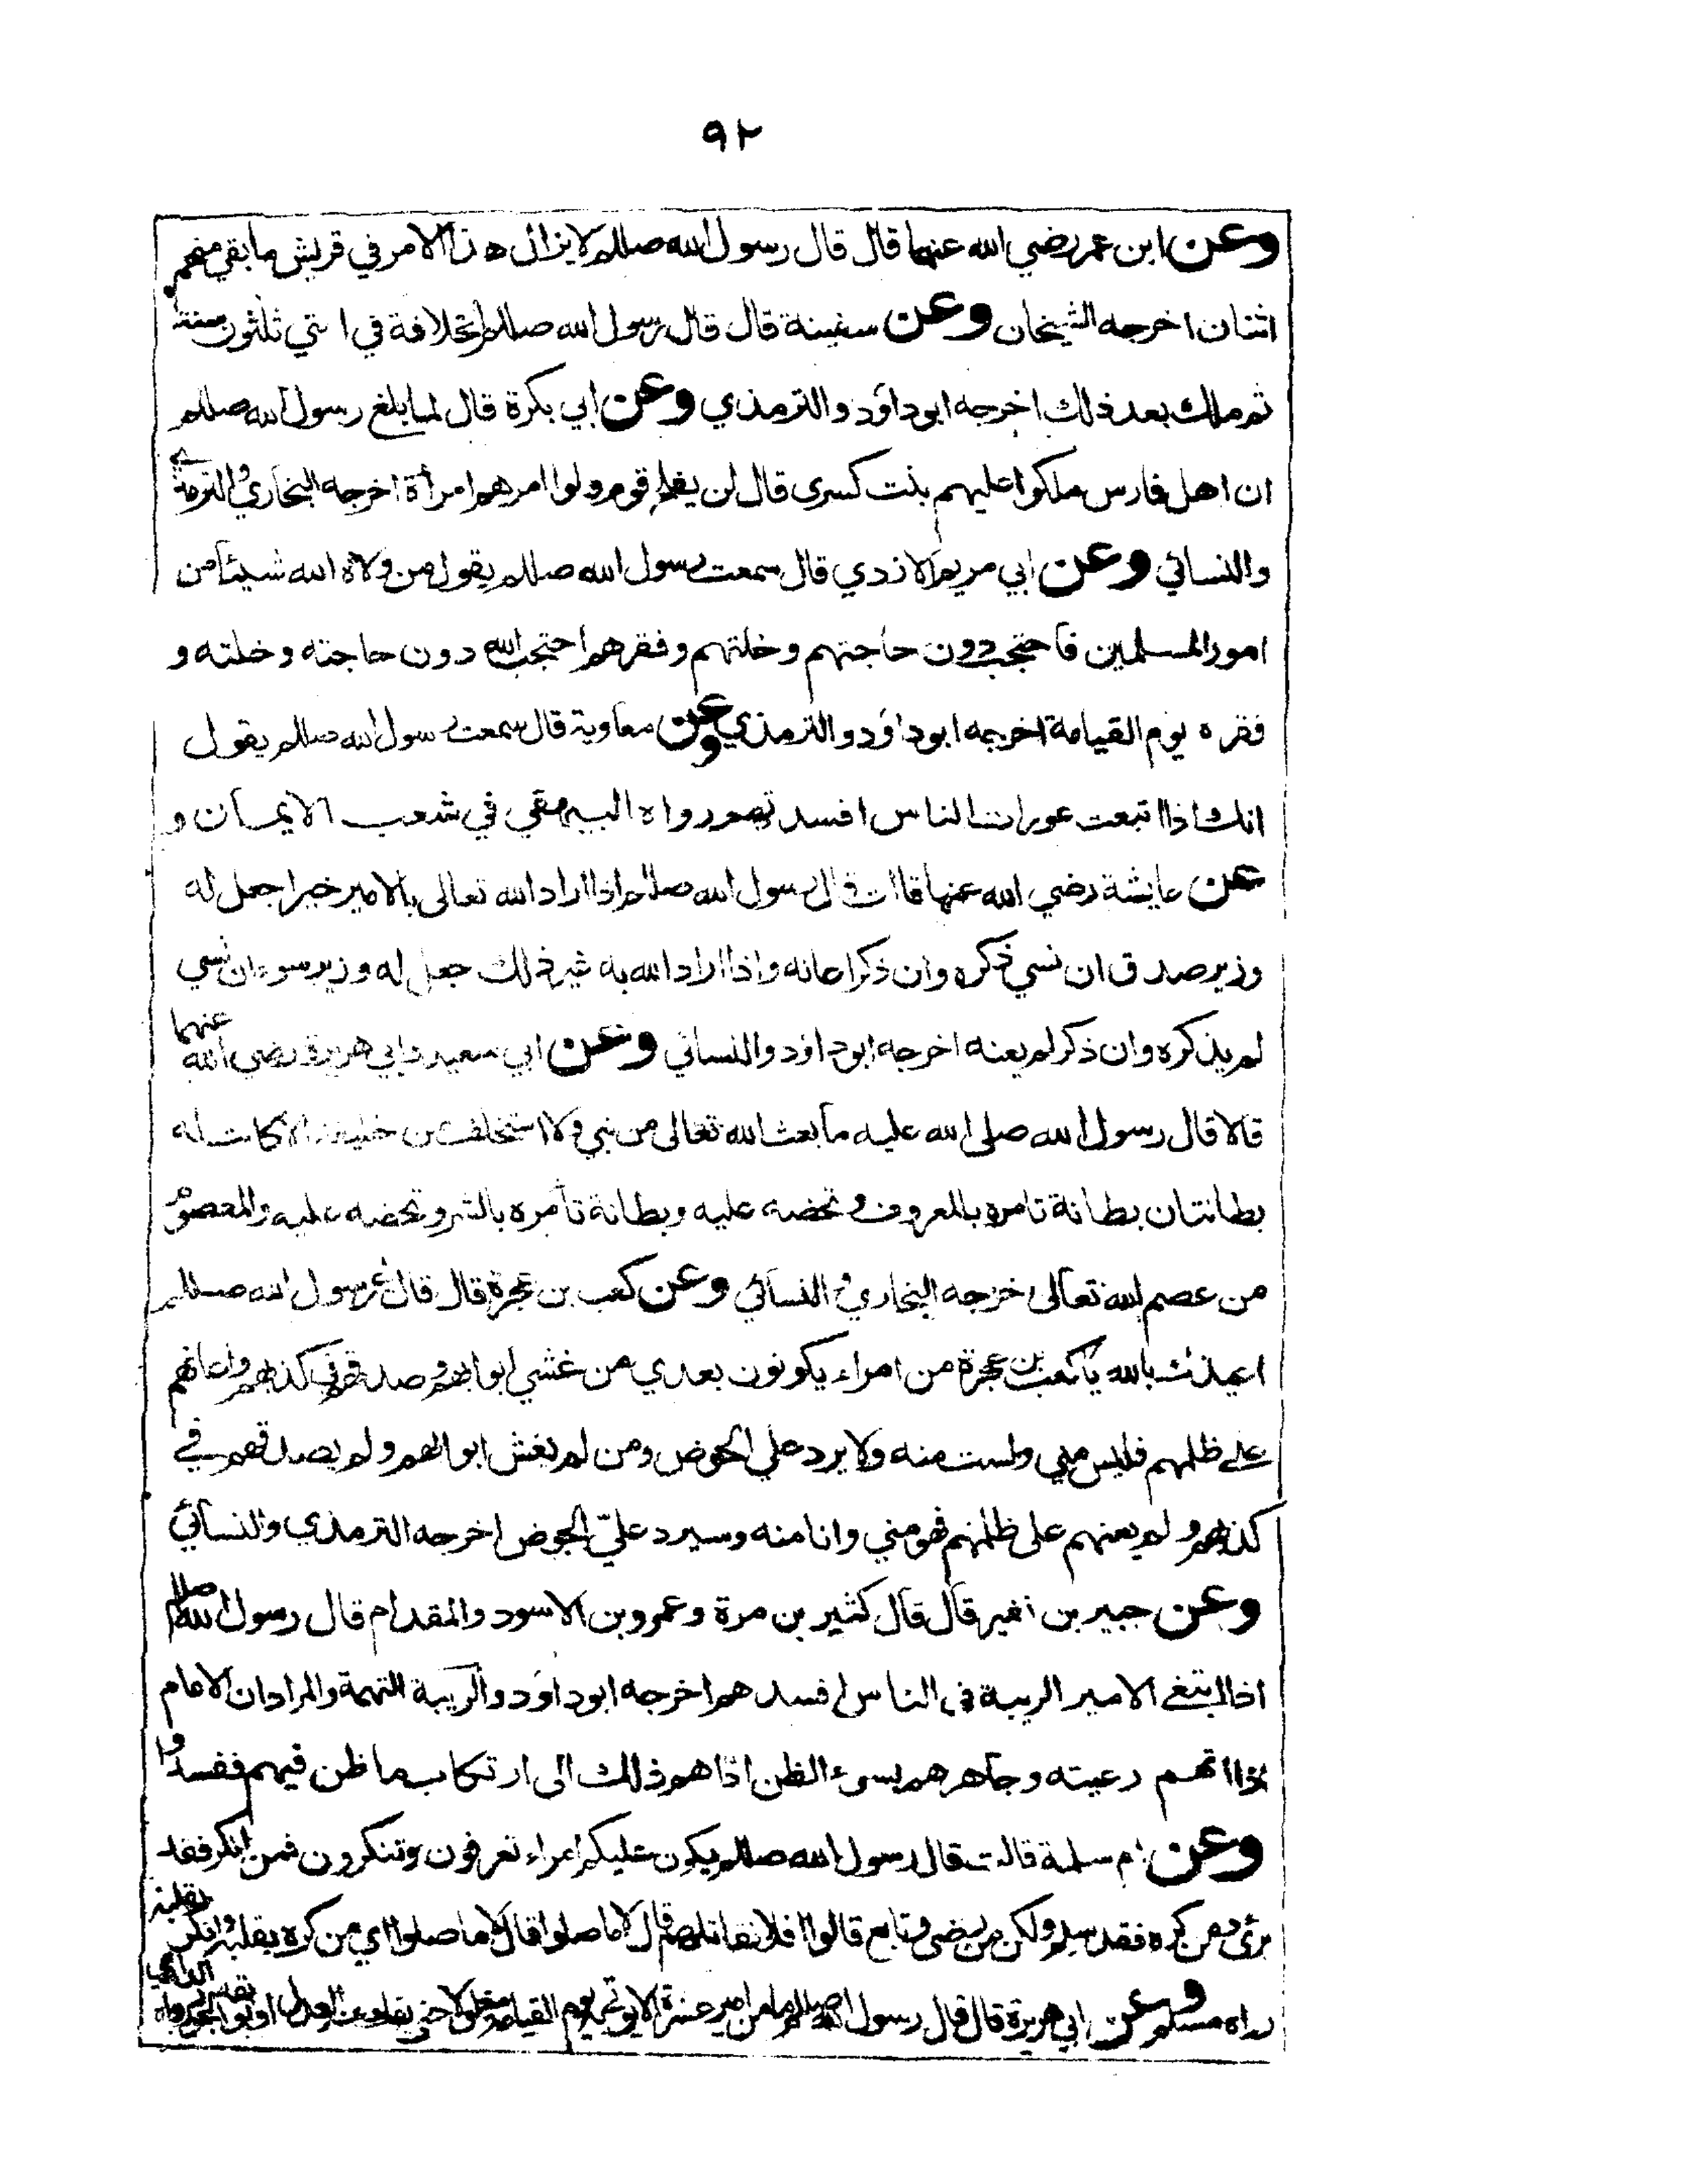 ٩٢
وعن ابن عمر رضي الله عنهما قال قال رسول الله صللم لا يزال هذا الامر في قريش ما بقي منهم
اثنان اخرجه الشيخان وعن سفينة قال قال رسول الله صللم الخلافة في امتي ثلثون سنة
ثم ملك بعد ذلك اخرجه ابوداؤد والترمذي وعن ابي بكرة قال لما بلغ رسول الله صللم
ان اهل فارس ملكوا عليهم بنت كسرى قال لن يفلح قوم ولوا امرهم امرأة اخرجه البخاري والترمذي
والنسائي وعن ابي مريم الازدي قال سمعت رسول الله صللم يقول من ولاه الله شيئا من
امور المسلمين فاحتجب دون حاجتهم وخلتهم وفقرهم احتجب الله دون حاجته وخلته و
فقره يوم القيامة اخرجه ابوداؤد والترمذي وعن معاوية قال سمعت رسول الله صللم يقول
انك اذا اتبعت عورات الناس افسدتهم رواه البيهقي في شعب الايمان و
عن عايشة رضي الله عنها قالت قال رسول الله صللم اذا اراد الله تعالى بالامير خيرا جعل له
وزير صدق ان نسي ذكره وان ذكر اعانه واذا اراد الله به غير ذلك جعل له وزير سوء ان نسي
لم يذكره وان ذكر لم يعنه اخرجه ابوداؤد والنسائي وعن ابي سعيد وابي هريرة رضي الله عنهما
قالا قال رسول الله صلى الله عليه ما بعث الله تعالى من نبي ولا استخلف من خليفة الا كانت له
بطانتان بطانة تامره بالمعروف وتحضه عليه وبطانة تأمره بالشر وتحضه عليه والمعصوم
من عصم الله تعالى اخرجه البخاري والنسائي وعن كعب بن عجرة قال قال رسول الله صللم
اعيذك بالله ياكعب بن عجرة من امراء يكونون بعدي من غشي ابوابهم وصدقهم في كذبهم واعانهم
على ظلمهم فليس مني ولست منه ولا يرد علي الحوض ومن لم يغش ابوابهم ولم يصدقهم في
كذبهم ولم يعنهم على ظلمهم فهو مني وانا منه وسيرد عليّ الحوض اخرجه الترمذي والنسائي
وعن جبير بن نفير قال قال كثير بن مرة وعمرو بن الاسود والمقدام قال رسول الله صللم
اذا ابتغى الامير الريبة في الناس افسدهم اخرجه ابوداؤد والريبة التهمة والمراد ان الامام
اذا اتهم رعيته وجاهرهم بسوء الظن اذاهم ذلك الى ارتكاب ما ظن فيهم ففسدوا
وعن ام سلمة قالت قال رسول الله صللم يكون عليكم امراء تعرفون وتنكرون فمن انكر فقد
برئ ومن كره فقد سلم ولكن من رضي وتابع قالوا افلا نقاتلهم قال لا ما صلوا قال لا ما صلوا اي من كره بقلبه وانكر بقلبه
رواه مسلم وعن ابي هريرة قال قال رسول الله صللم ما من امير عشرة الا يوتى به يوم القيامة مغلولا حتى يفك عنه العدل او يوبقه الجور رواه الدارمي